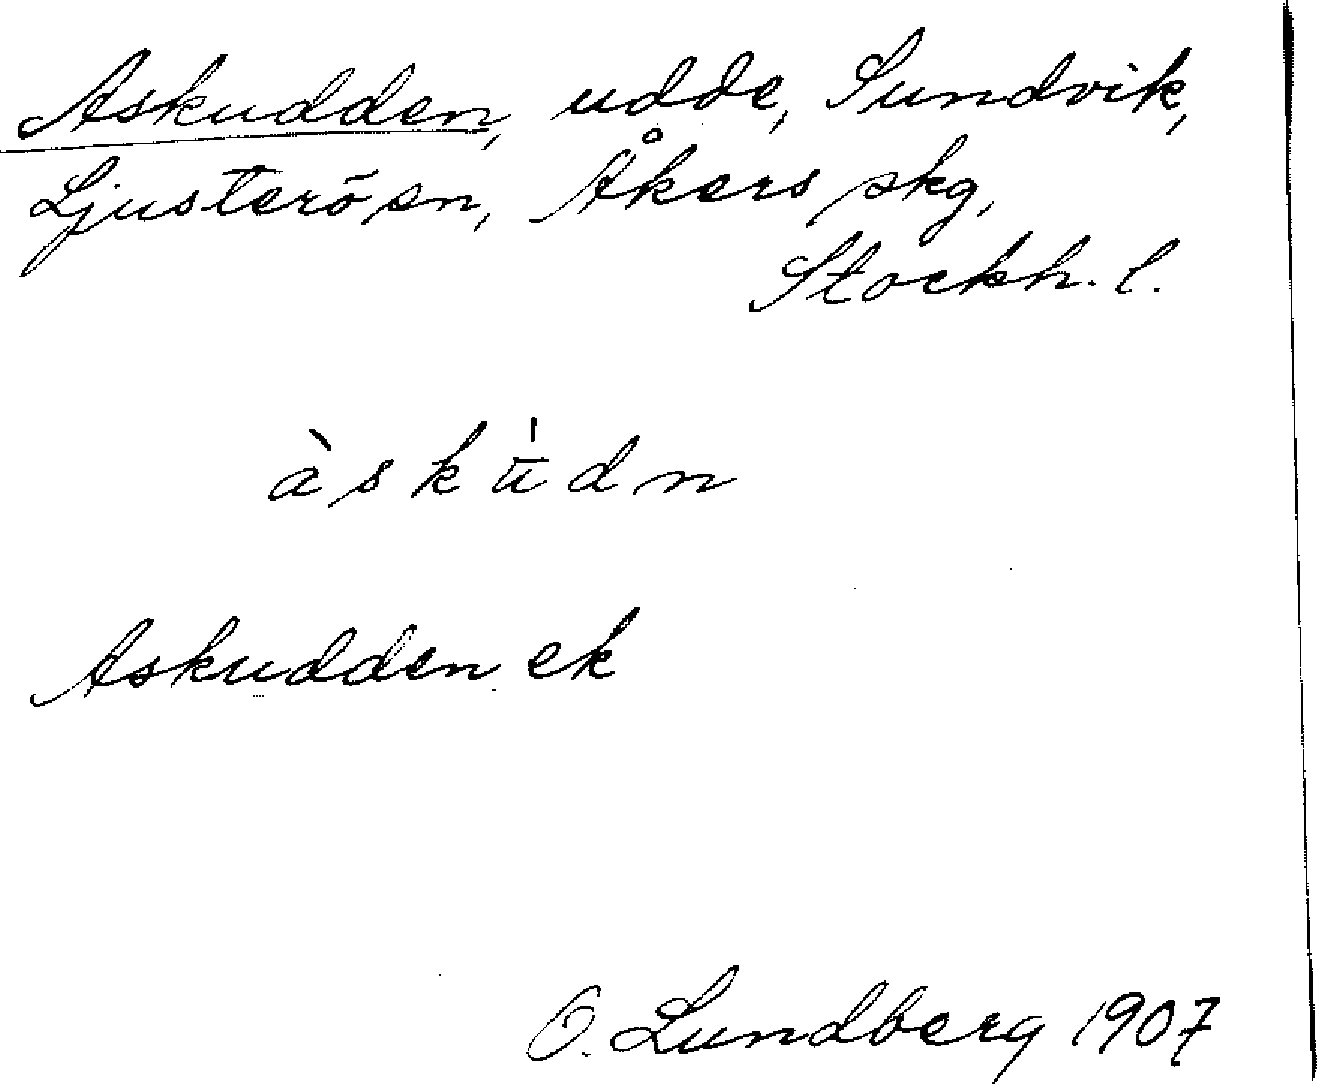 Askudden, udde, Sundvik,
Ljusterö sn, Åkers skg,
Stockh. l.
àskū̍dn
Askudden ek
O. Lundberg 1907